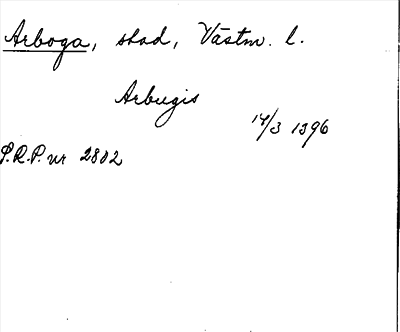 Arboga, stad, Västm. l.
Arbugis
14/3 1396
S.R.P. nr 2802